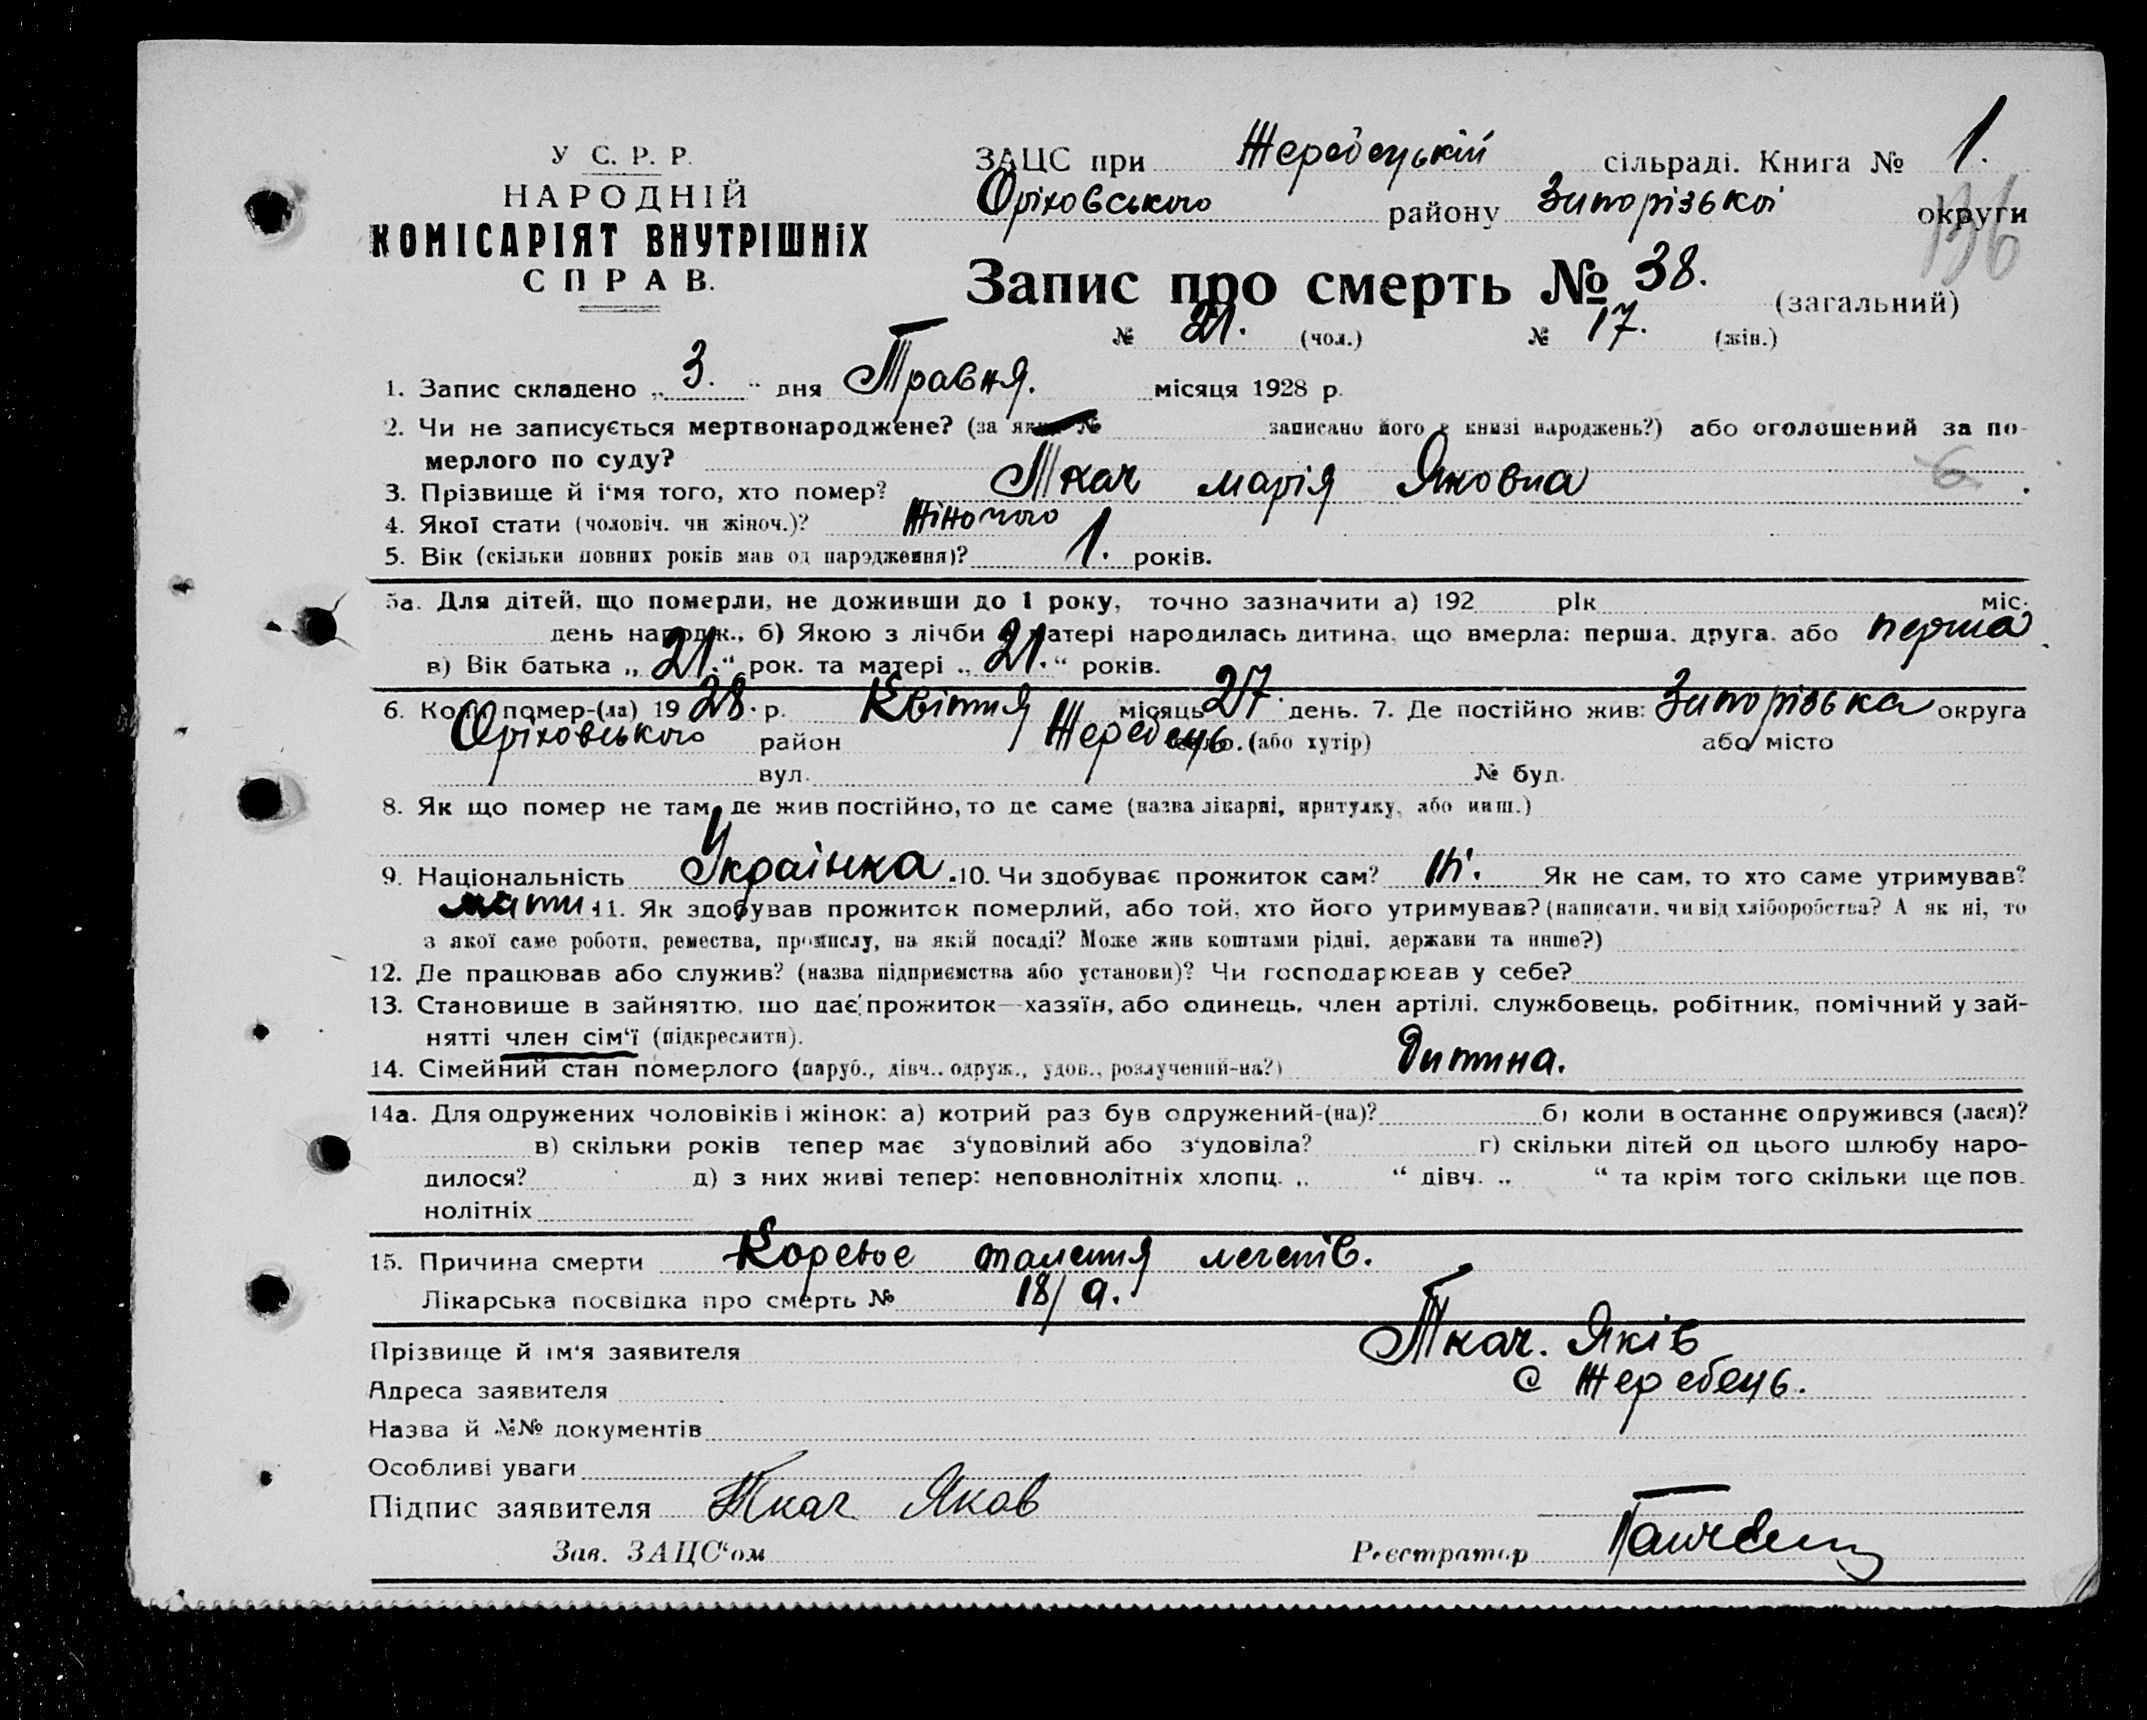 У С. Р. Р.
НАРОДНІЙ
КОМІСАРІЯТ ВНУТРІШНІХ
СПРАВ.
ЗАЦС при Жеребецькій сільраді. Книга № 1.
Оріховського району Запорізької округи
136
Запис про смерть № 38. (загальний)
№ 21. (чол.) № 17. (жін.)
1. Запис складено „3.“ дня Травня. місяця 1928 р.
2. Чи не записується мертвонароджене? (за яким № записано його в книзі народжень?) або оголошений за по-
мерлого по суду?
3. Прізвище й і‘мя того, хто помер? Ткач Марія Яковна
6
4. Якої стати (чоловіч. чи жіноч.)? Жіночого
5. Вік (скільки повних років мав од народження)? 1. років.
5а. Для дітей, що померли, не доживши до 1 року, точно зазначити а) 192 рік міс.
день народж., б) Якою з лічби у матері народилась дитина, що вмерла: перша, друга, або перша
в) Вік батька „21.“ рок. та матері „21.“ років.
6. Коли помер-(ла) 1928. р. Квітня місяць 27 день. 7. Де постійно жив: Запорізька округа
Оріховського район Жеребець. село. (або хутір) або місто
вул. № буд.
8. Як що помер не там, де жив постійно, то де саме (назва лікарні, притулку, або инш.)
9. Національність Украінка. 10. Чи здобуває прожиток сам? Ні. Як не сам, то хто саме утримував?
мати 11. Як здобував прожиток померлий, або той, хто його утримував? (написати, чи від хліборобства? А як ні, то
з якої саме роботи, ремества, промислу, на якій посаді? Може жив коштами рідні, держави та инше?)
12. Де працював або служив? (назва підприємства або установи)? Чи господарював у себе?
13. Становище в зайняттю, що дає прожиток—хазяїн, або одинець, член артілі, службовець, робітник, помічний у зай-
нятті член сім‘ї (підкреслити).
14. Сімейний стан померлого (паруб., дівч., одруж., удов., розлучений-на?) Дитина.
14а. Для одружених чоловіків і жінок: а) котрий раз був одружений-(на)? б) коли в останнє одружився (лася)?
в) скільки років тепер має з‘удовілий або з‘удовіла? г) скільки дітей од цього шлюбу наро-
дилося? д) з них живі тепер: неповнолітніх хлопц. „ “ дівч. „ “ та крім того скільки ще пов.
нолітніх
15. Причина смерти легенів.
Лікарська посвідка про смерть № 18/а.
Прізвище й ім‘я заявителя Ткач. Яків
Адреса заявителя с Жеребець.
Назва й №№ документів
Особливі уваги
Підпис заявителя Ткач Яков
Зав. ЗАЦС‘ом Реєстратор